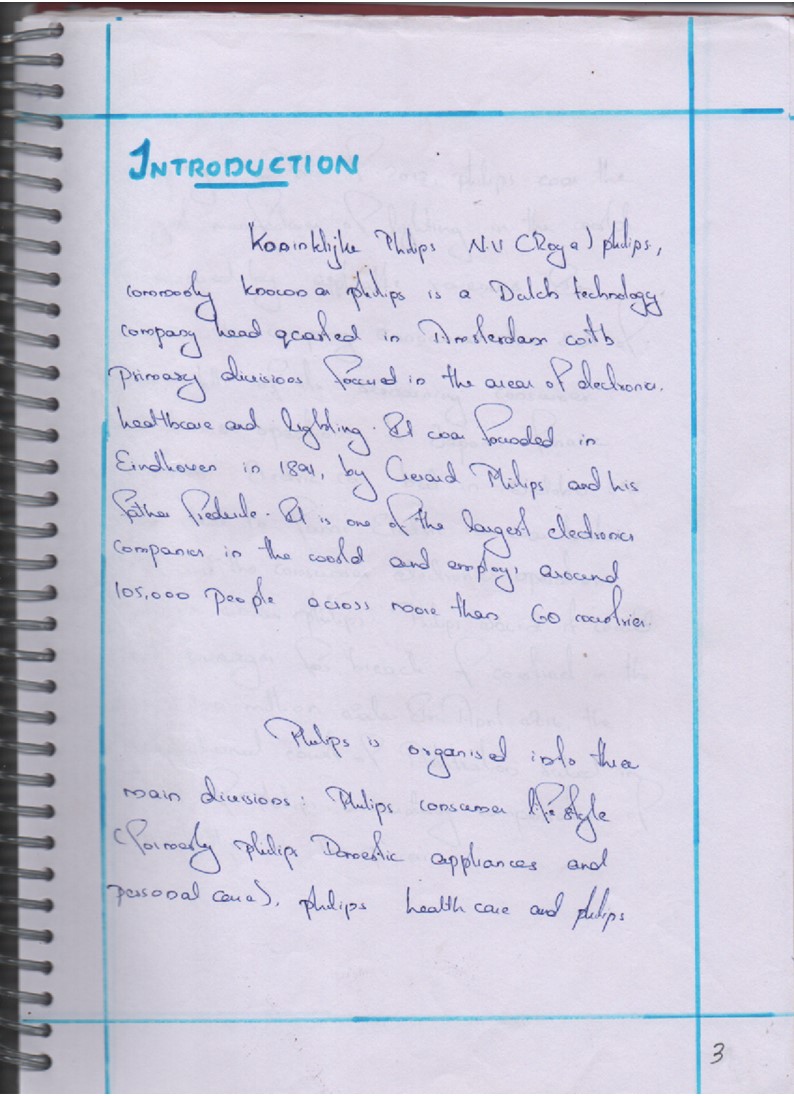 INTRODUCTION
Koninklijke Philips N.V (Royal) philips,
commonly known as philips is a Dutch technology
company head quarted in Amsterdam with
primary divisions focused in the areas of electronics.
healthcare and lighting. It was founded in
Eindhoven in 1891, by Gerard Philips and his
father Frederik. It is one of the largest electronics
companies in the world and employs around
105,000 people across more than 60 countries.
Philips is organised into three
main divisions: Philips consumer life style
(formerly philips Domestic appliances and
personal care), philips health care and philips
3